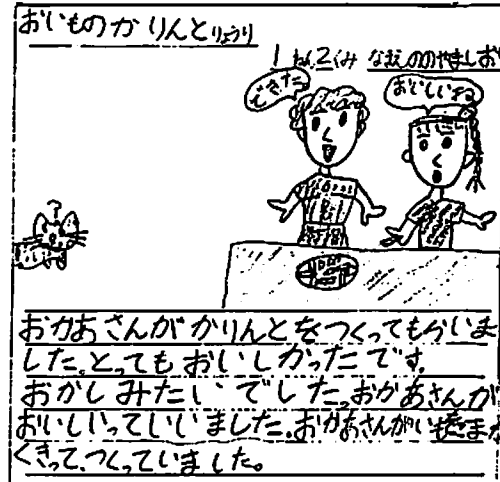 おいものかりんとりょうり
1ねん2くみ なまえののやましお
できた
おいしいね
?
おかあさんがかりんとをつくってもらいま
した。とってもおいしかったです。
おかしみたいでした。おかあさんが
おいしいっていいました。おかあさんがい
くきって、つくっていました。